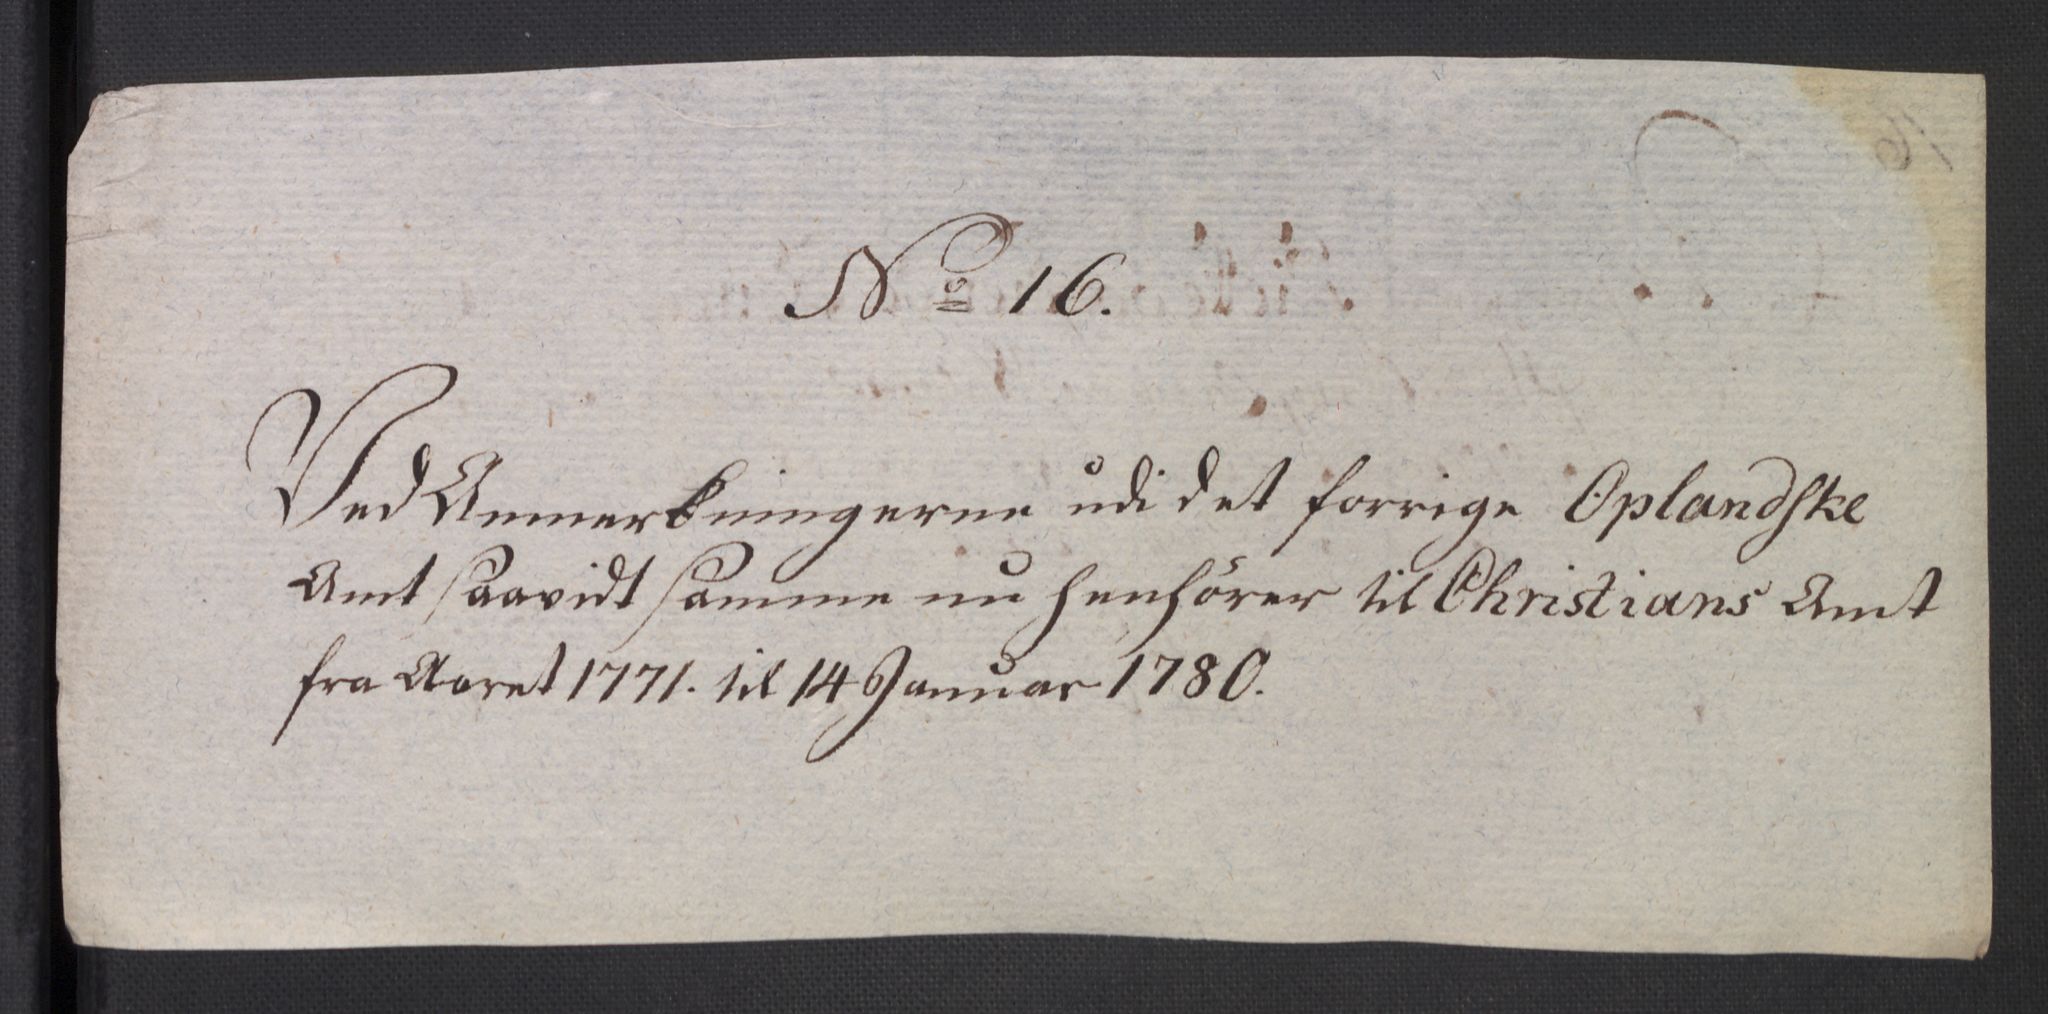 No 16.
Ved Anmerkningerne udi det forrige Oplandske
Amt saavidt samme nu henhörer til Christians Amt
fra Aaret 1771. til 14 Januar 1780.
16